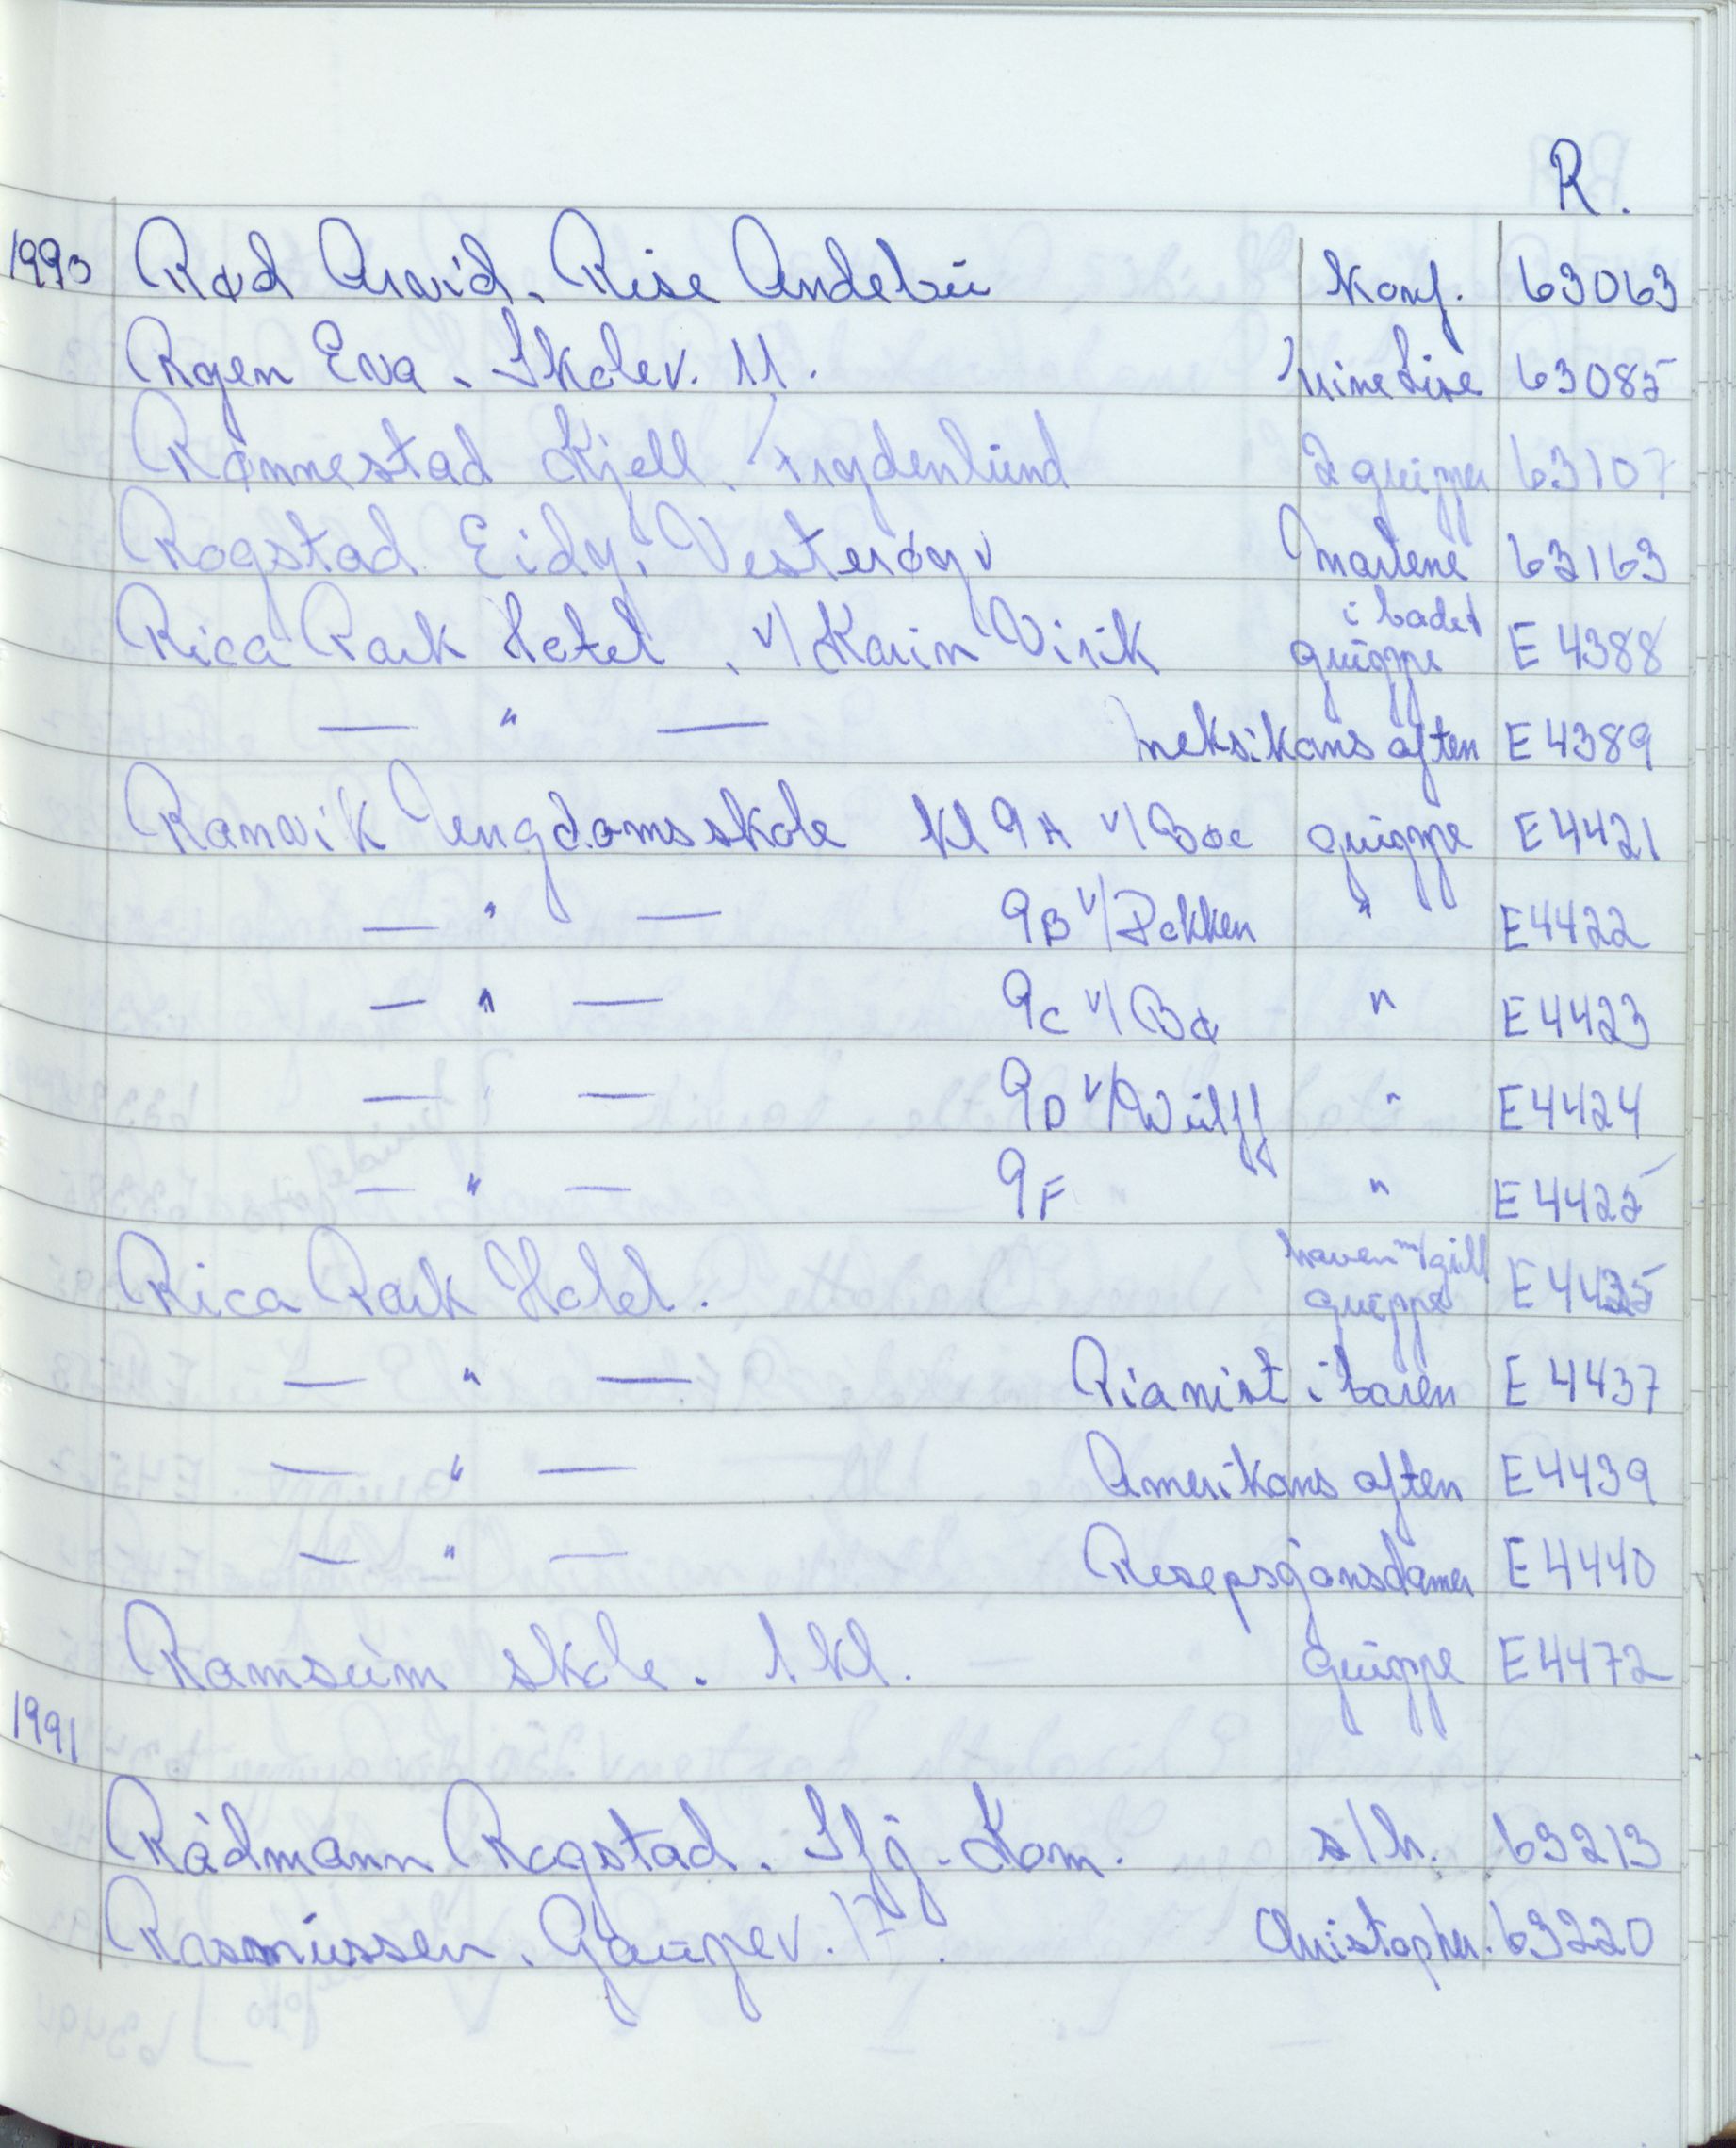 R.
1990 Rød Arvid. Rise Andebu konf. 63063
Rgen Eva. Skolev. 11. Trine Lise 63085
Rønnestad Kjell. Frydenlund 2 grupper 63107
Rogstad Eidy, Vesterøyv Marlene 63163
Rica Park Hotel, v/ Karin Virik i badet gruppe E 4388
— " — Meksikans aften E 4389
Ranvik Ungdomsskole kl 9A v/ Boe gruppe E 4421
— " — 9B v/ Bakken " E 4422
— " — 9C v/ Bø " E 4423
— " — 9D v/ Wulff " E 4424
— " — 9F " E 4425
Rica Park Hotel. haven m/grill gruppe E 4435
— " — Pianist i baren E 4437
— " — Amerikans aften E 4439
— " — Resepsjonsdamer E 4440
Ramsum skole. 1. kl. gruppe E 4472
1991
Rådmann Rogstad. Sfj. Kom. s/h. 63213
Rasmussen. Gaupev. 17. Christopher. 63220